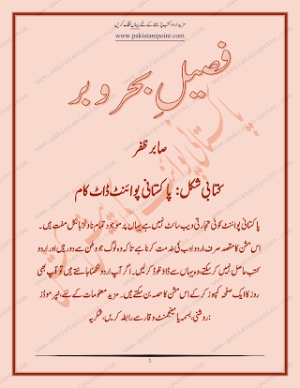 مزید اردو کتب پڑھنے کے لئے یہاں کلک کریں
www.pakistanipoint.com
فصیلِ بحر و بر
صابر ظفر
کتابی شکل: پاکستانی پوائنٹ ڈاٹ کام
پاکستانی پوائنٹ کوئی تجارتی ویب سائٹ نہیں ہے یہاں پر موجود تمام ناولز بالکل مفت ہیں۔
اس مشن کا مقصد صرف اردو ادب کی خدمت کرنا ہے تاکہ وہ لوگ جو وطن سے دور ہیں اور اردو
کتب حاصل نہیں کر سکتے، وہ یہاں سے ڈاؤنلوڈ کر لیں۔ اگر آپ اردو لکھنا جانتے ہیں تو آپ بھی
روز کا ایک صفحہ کمپوز کر کے اس مشن کا حصہ بن سکتے ہیں۔ مزید معلومات کے لئے، سپر موڈز
:روشنی، بسمہ یا مینجمنٹ وقار سے رابطہ کریں، شکریہ
1